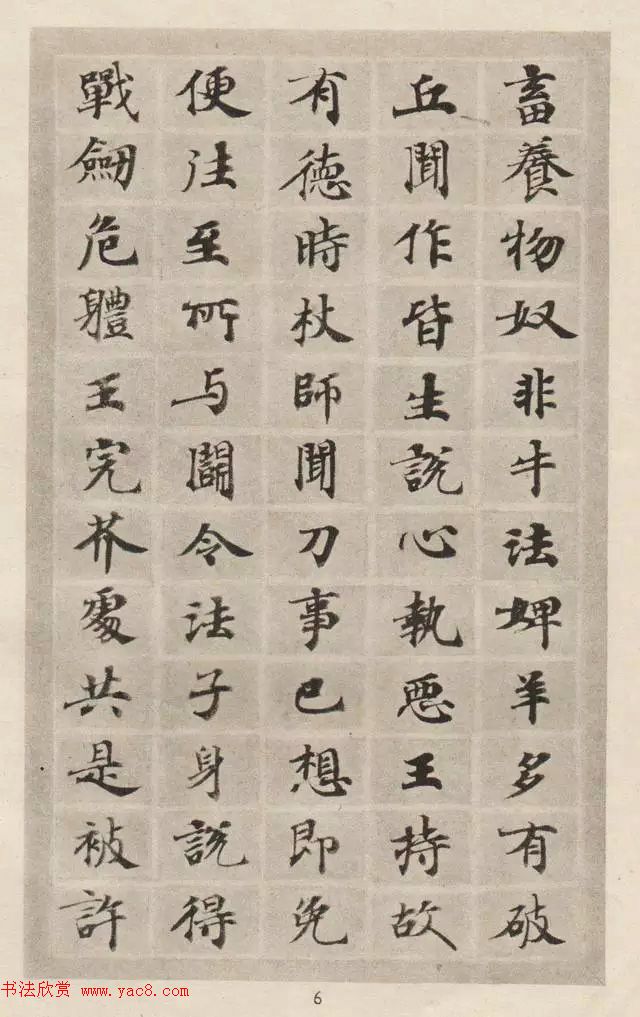 畜養物奴非牛法婢羊多有破
丘聞作皆生説心執惡王持故
有德時杖師聞刀事已想即免
便往至所与鬪令法子身説得
戰劒危體王完芥處共是被許
书法欣赏 www.yac8.com
6